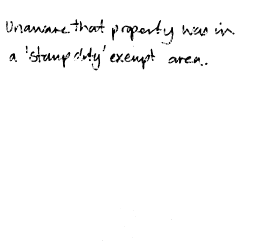 Unaware that property was in
a 'stamp duty' exempt area.